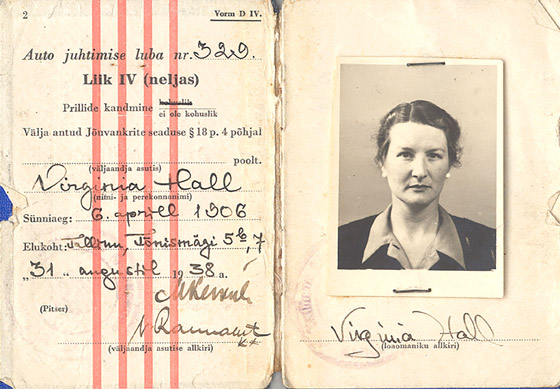 2
Vorm D IV.
Auto juhtimise luba nr. 329.
Liik IV (neljas)
Prillide kandmine kohuslik
ei ole kohuslik
Välja antud Jõuvankrite seaduse § 18 p. 4 põhjal
poolt.
(väljaandja asutis)
Virginia Hall
(nimi- ja perekonnanimi)
Sünniaeg: 6. aprill 1906
Elukoht: Tallinn, Tõnismägi 5b, 7
„31„ augustil 1938 a.
(Pitser)
(väljaandja asutise allkiri)
Virginia Hall
(loaomaniku allkiri)